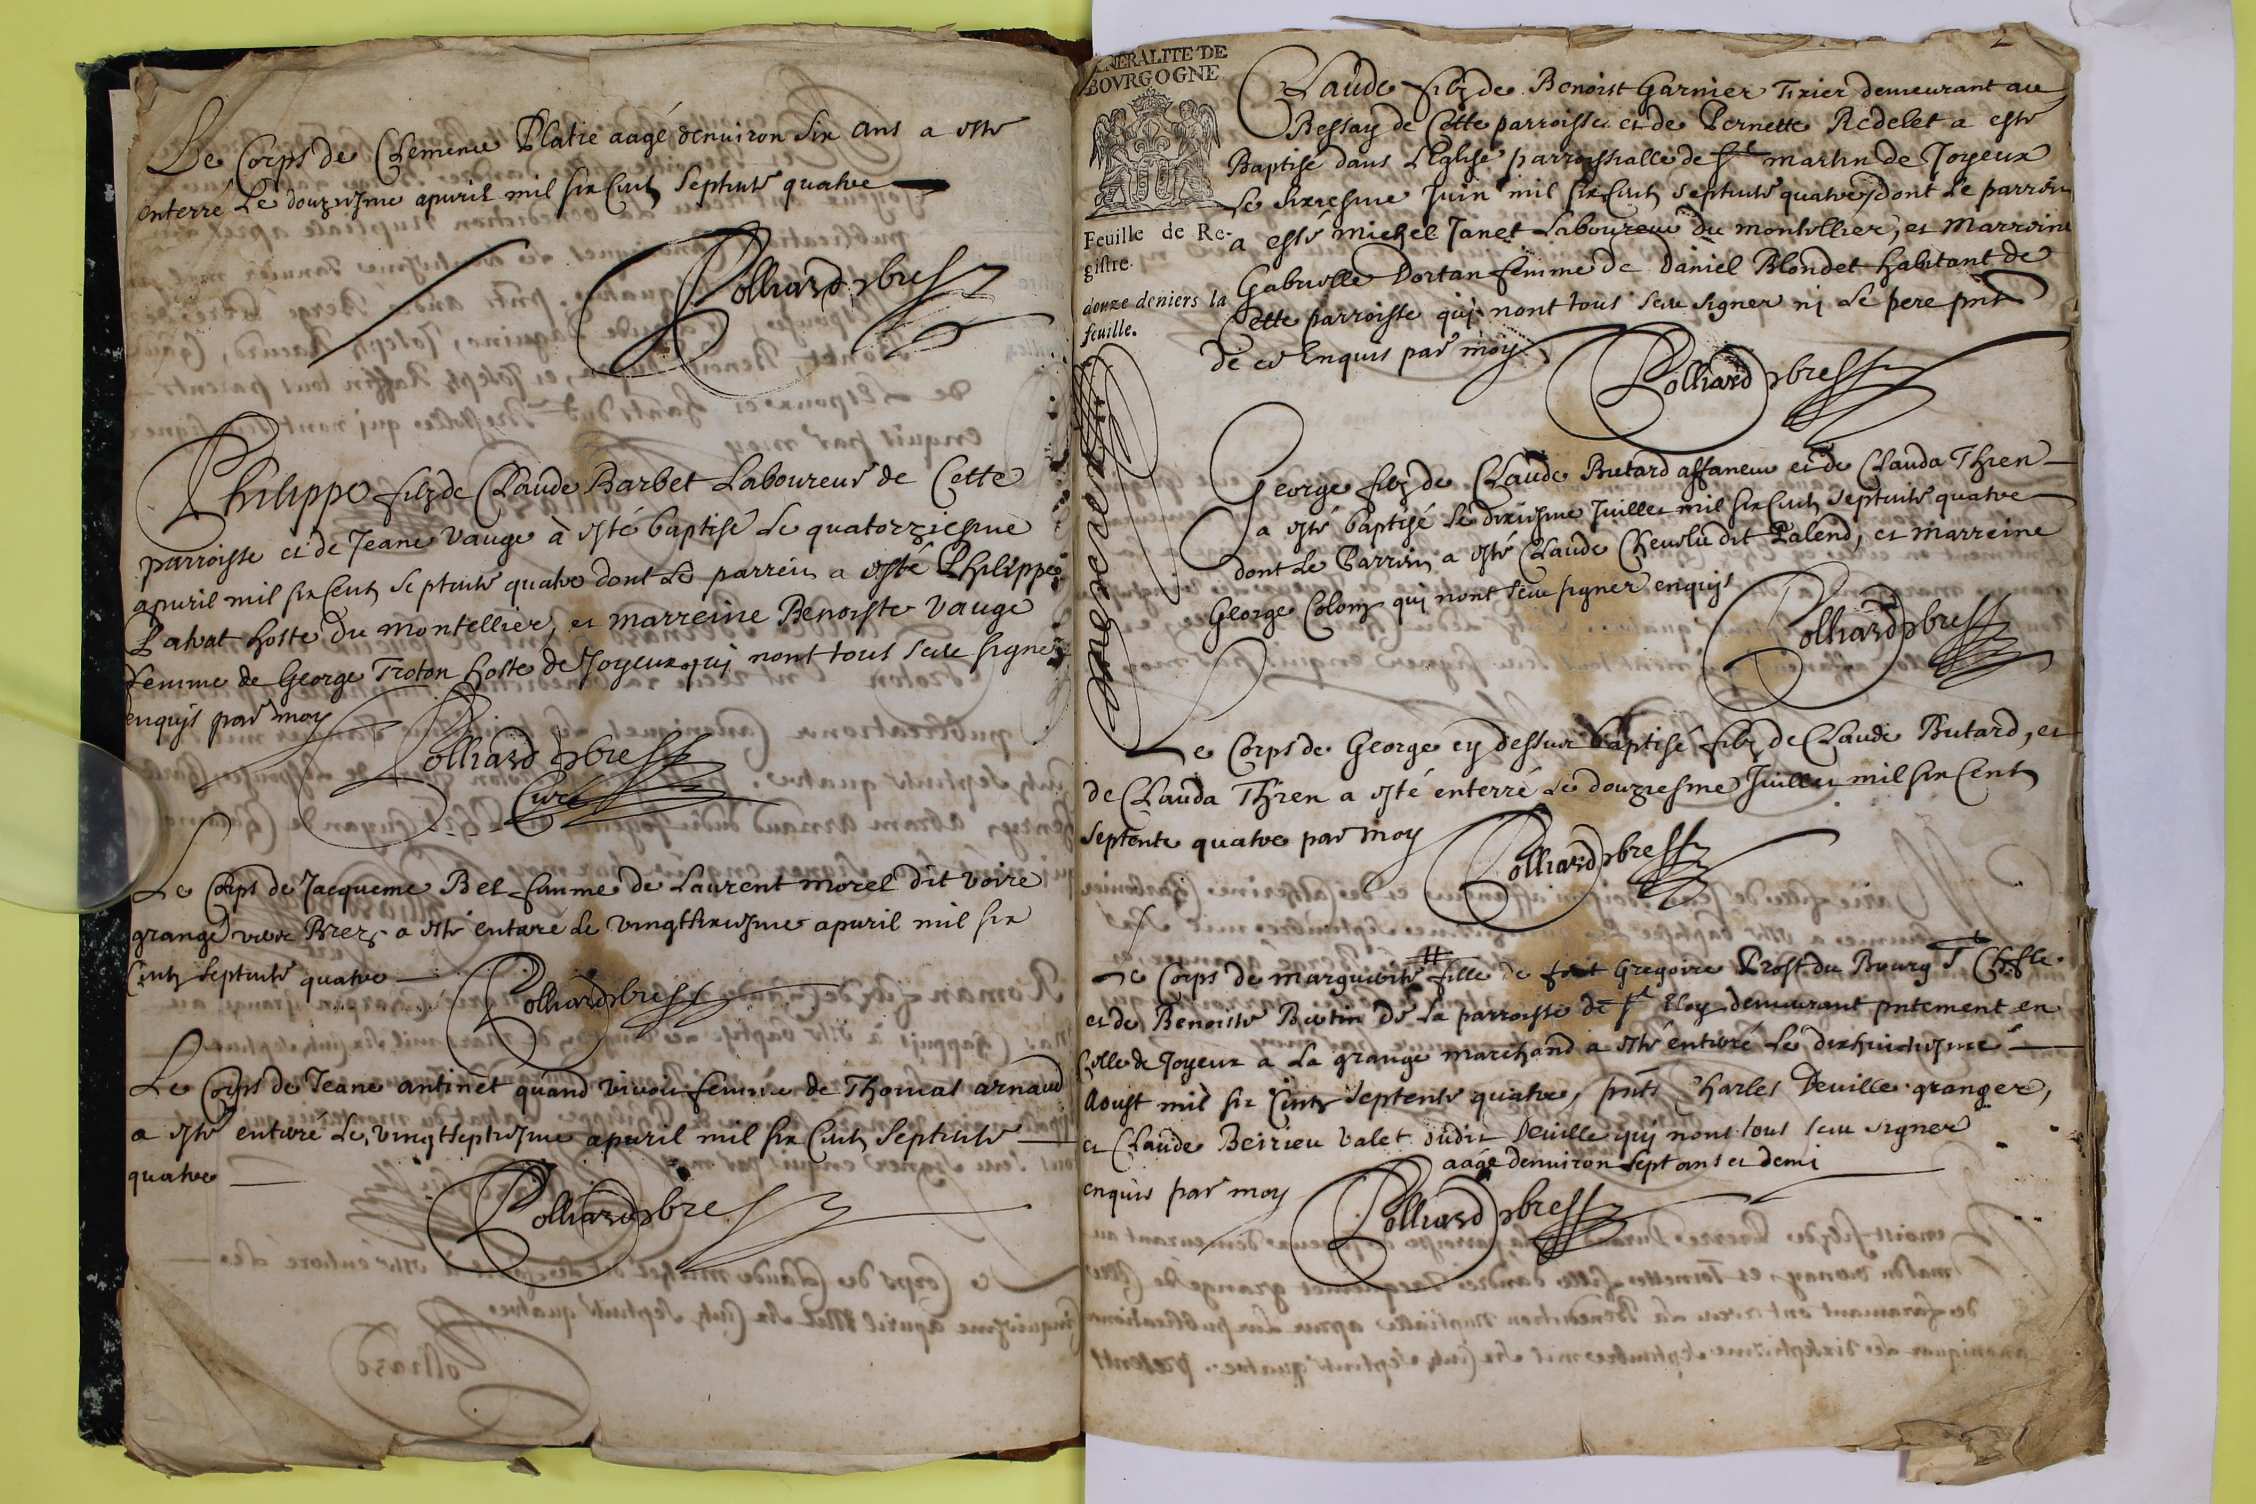 Le Corps de Clemence Platie aagé denuiron six ans a esté
enterré le douziesme apuril mil six cents septente quatre
Colliard de bress
Philippe filz de Claude Barbet Laboureur de Cette
parroisse et de Jeane Vauge à esté baptisé le quatorziesme
apuril mil six cents septente quatre dont le parrein a esté Philippe
hoste du montellier, et marreine Benoiste Vauge
femme de George Troton hoste de Joyeux qui nont tous sceu signer
enquis par moy
Colliard de bress
Curé
Le Corps de Jacqueme Bel femme de Laurent morel dit voire
grange a esté enterré le vingtsixiesme apuril mil six
cents septente quatre
Colliard de bress
Le Corps de Jeane antinet quand vivoit femme de Thomas arnaud
a esté enterré le vingtseptiesme apuril mil six cents septente
quatre
Colliard de bress
2
GENERALITE DE
BOVRGOGNE
Feuille de Re-
gistre.
douze deniers la
feuille.
Claude filz de Benoist Garnier Tixier demeurant au
Bessay de Cette parroisse et de Pernette Redelet a esté
Baptisé dans L'Eglise parroissialle de St martin de Joyeux
le sixiesme Juin mil six cents septente quatre dont le parrein
a esté michel Janet Laboureur du montellier, et Marreine
Gabrielle Dortan femme de Daniel Blondet habitant de
Cette parroisse qui nont tous sceu signer ni le pere pnt
de ce Enquis par moy
Colliard de bress
George filz de Claude Butard affaneur et de Clauda Thren
a esté baptisé le dixiesme Juillet mil six cents septente quatre
dont le Parrein a esté Claude dit Palend, et marreine
George Colomb qui nont sceu signer enquis
Colliard de bress
Le Corps de George cy dessus baptisé filz de Claude Butard, et
de Clauda Thren a esté enterré le douziesme Juillet mil six Cents
septente quatre par moy
Colliard de bress
Le Corps de marguerite # fille de feut Gregoire Prost du Bourg St Chfle
et de Benoiste Butin de la parroisse de St Eloy demeurant pntement en
Celle de Joyeux a la grange marchand a esté enterré le dixhuictiesme
Aoust mil six Cents septente quatre, pnts Charles Deuille granger,
et Claude Beirieu valet dudit Deuille qui nont tous sceu signer
aagé denuiron sept ans et demi
enquis par moy
Colliard de bress